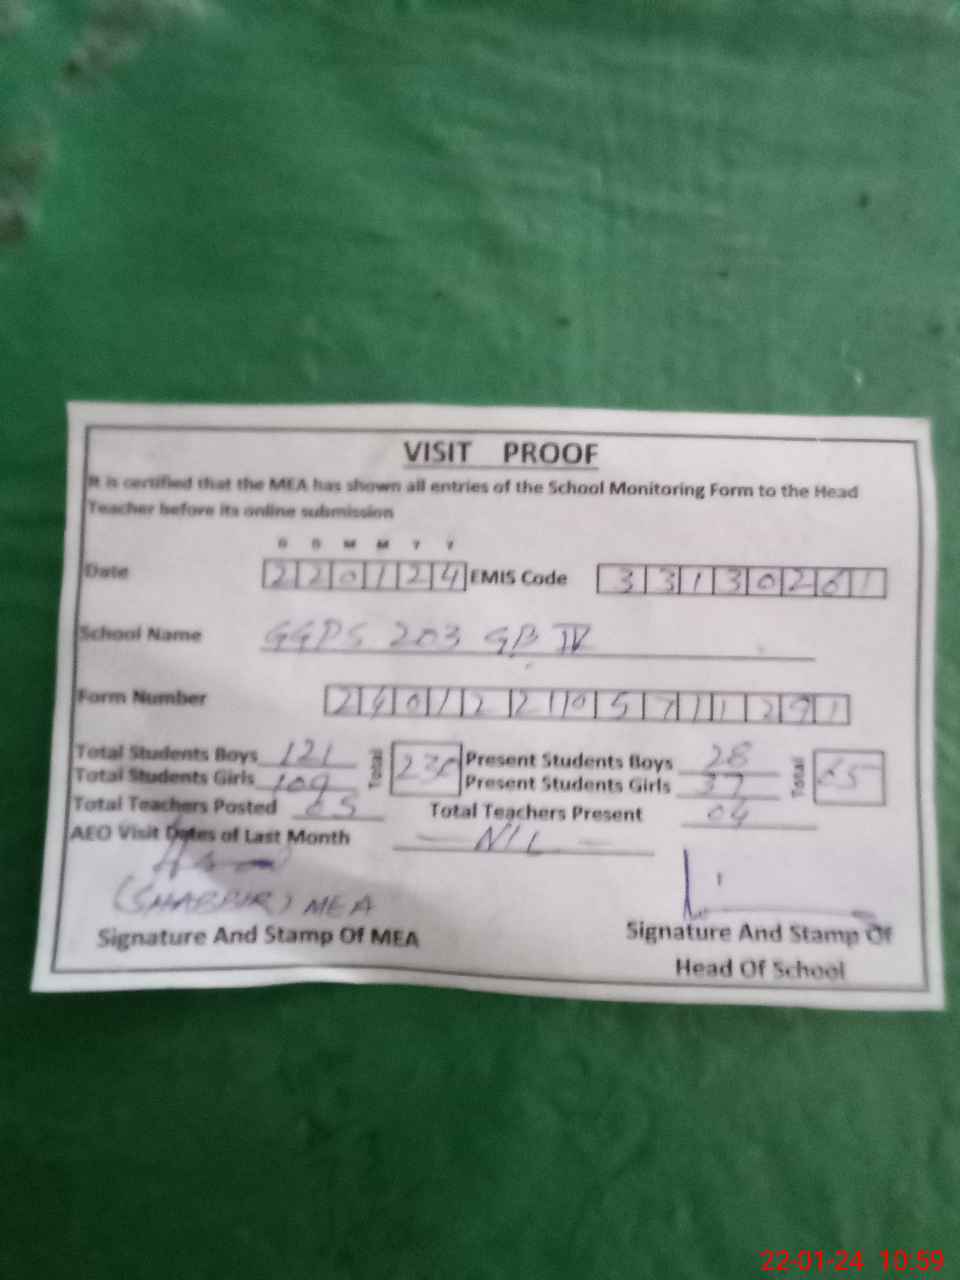 VISIT PROOF
It is certified that the MEA has shown all entries of the School Monitoring Form to the Head
Teacher before its online submission
D D M M Y Y
Date 220124 EMIS Code 33130261
School Name GGPS 203 GB IV
Form Number
Total Students Boys 121 Total 230 Present Students Boys 28 Total 65
Total Students Girls 109 Present Students Girls 37
Total Teachers Posted 05 Total Teachers Present 04
AEO Visit Dates of Last Month NIL
MEA
Signature And Stamp Of MEA
Signature And Stamp Of
Head Of School
22-01-24 10:59